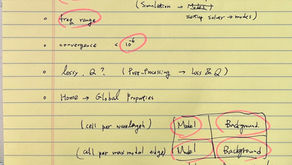 (Simulation → Model
setup solver → modes)
freq range
convergence < 10⁻⁶
lossy, Q? (Post-Processing → Loss & Q)
Home → Global Properties
(cell per wavelength) Model Background
(cell per max model edge) Model Background